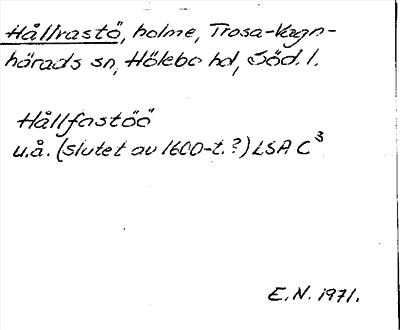 Hållvastö, holme, Trosa-Vagn-
härads sn, Hölebo hd, Söd. l.
Hållfastöö
u.å. (slutet av 1600-t.?) LSA C³
E.N. 1971.